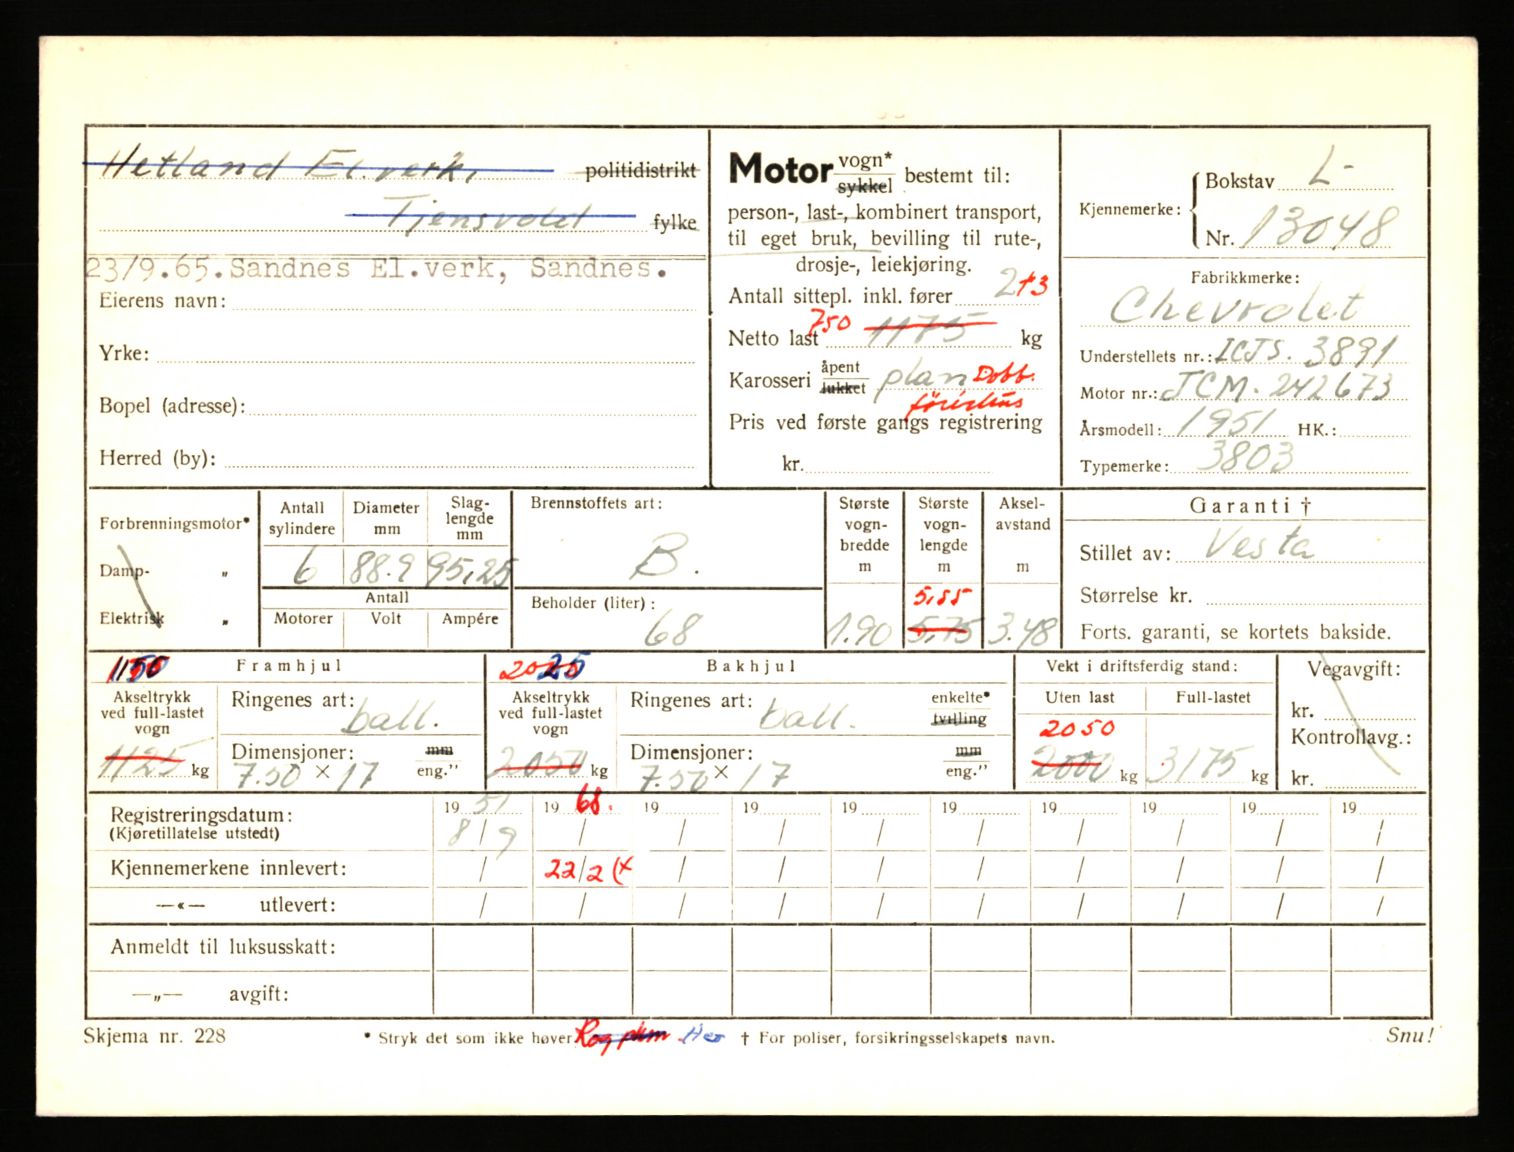 Hetland El.verk, politidistrikt
Tjensvold fylke
23/9.65. Sandnes El.verk, Sandnes.
Eierens navn:
Yrke:
Bopel (adresse):
Herred (by):
Motor vogn* sykkel bestemt til:
person-, last-, kombinert transport,
til eget bruk, bevilling til rute-,
drosje-, leiekjøring.
Antall sittepl. inkl. fører 2+3
Netto last 750 1175 kg
Karosseri åpent lukket plan Dobb.
førerhus
Pris ved første gangs registrering
kr.
Kjennemerke: Bokstav L-
Nr. 13048
Fabrikkmerke:
Chevrolet
Understellets nr.: ICJS. 3891
Motor nr.: JCM. 242673
Årsmodell: 1951 HK.:
Typemerke: 3803
Forbrenningsmotor*
Damp- „
Elektrisk „
Antall sylindere 6
Diameter mm 88.9
Slag-lengde mm 95,25
Antall
Motorer Volt Ampére
Brennstoffets art:
B.
Beholder (liter):
68
Største vogn-bredde m 1.90
Største vogn-lengde m 5,85 5,75
Aksel-avstand m 3.48
Garanti †
Stillet av: Vesta
Størrelse kr.
Forts. garanti, se kortets bakside.
1150 Framhjul
Akseltrykk ved full-lastet vogn
1125 kg
Ringenes art: ball.
Dimensjoner: mm
7.50 × 17 eng."
2025 Bakhjul
Akseltrykk ved full-lastet vogn
2050 kg
Ringenes art: ball. enkelte* tvilling
Dimensjoner: mm
7.50 × 17 eng."
Vekt i driftsferdig stand:
Uten last Full-lastet
2050
2000 kg 3175 kg
Vegavgift:
kr.
Kontrollavg.:
kr.
Registreringsdatum: 19 51 19 68. 19 19 19 19 19 19 19 19
(Kjøretillatelse utstedt) 8/9 / / / / / / / / /
Kjennemerkene innlevert: / 22/2 (x / / / / / / / /
—«— utlevert: / / / / / / / / / /
Anmeldt til luksusskatt:
—„— avgift:
Skjema nr. 228 * Stryk det som ikke høver † For poliser, forsikringsselskapets navn. Snu!